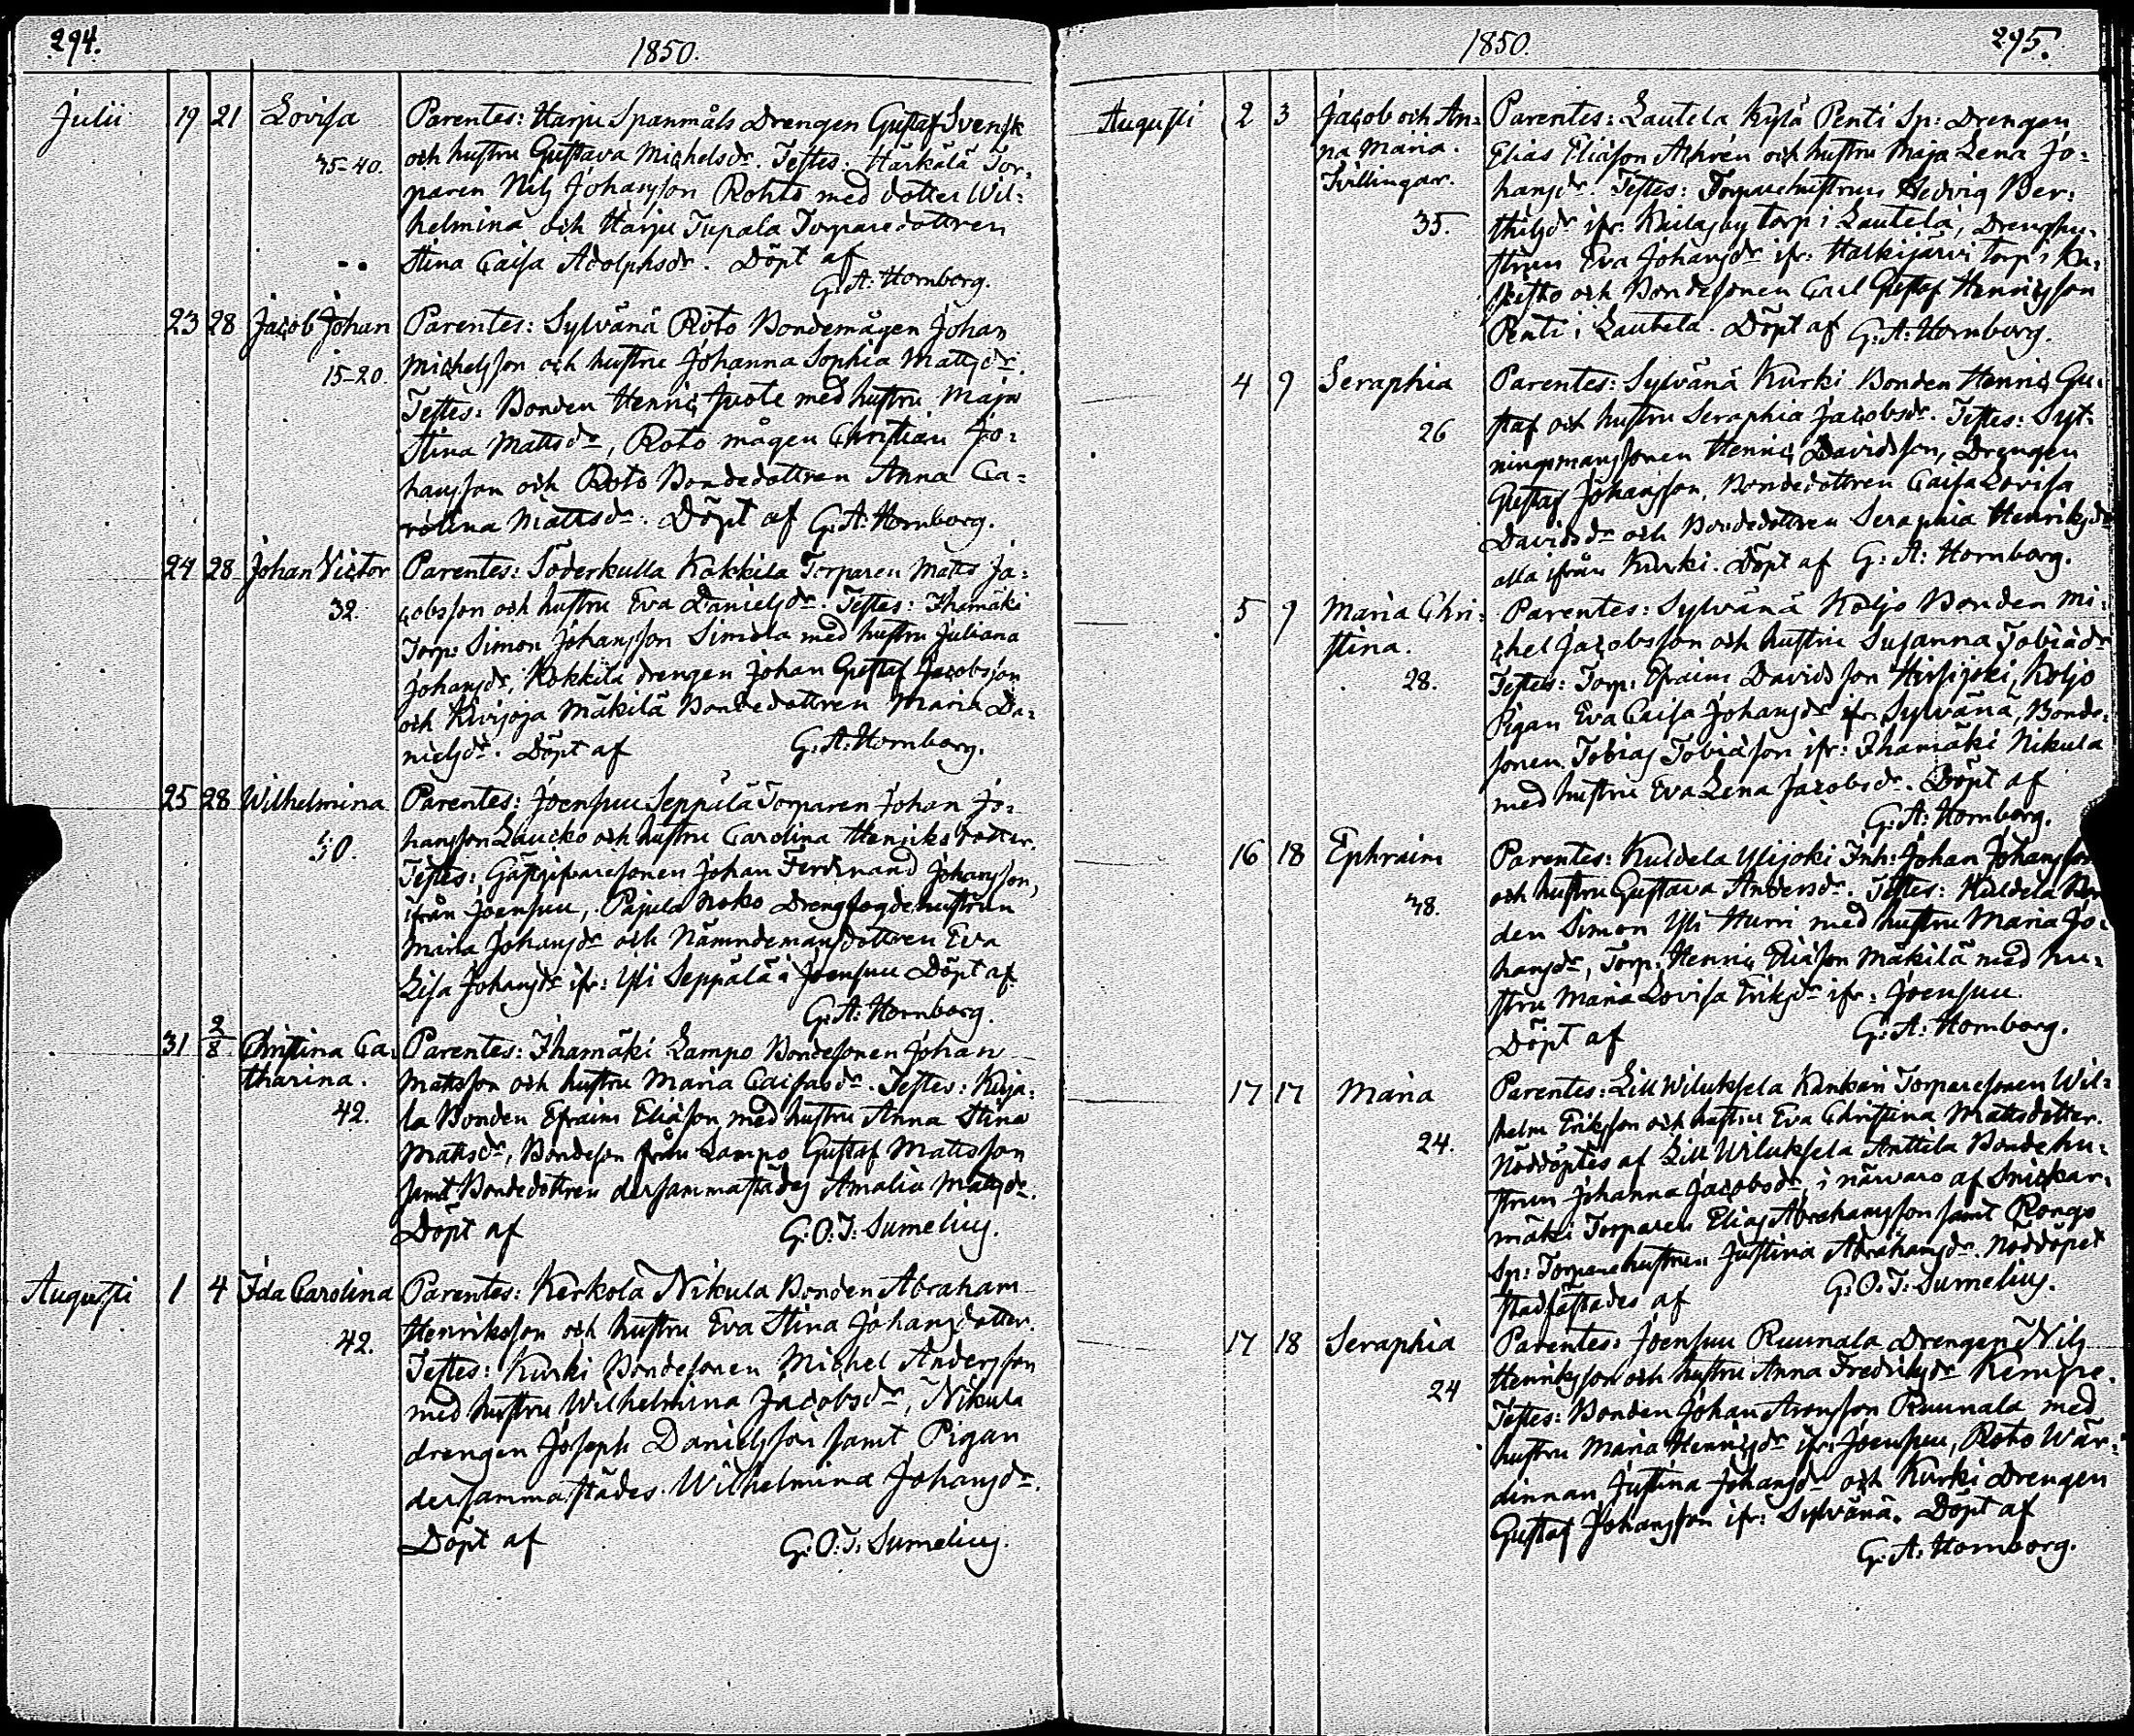 294.
1850.
Julii 19 21 Lovisa Parentes: Harju Spanmåls Drengen Gustaf Svensk
35-40. och hustru Gustava Michelsdr. Testes: Härkälä Tor-
paren Nils Johansson Rohto med dotter Wil-
helmina och Harju Tupala Torparedottren
Stina Caisa Adolphsdr. Döpt af
G: A: Hornborg.
23 28 Jacob Johan Parentes: Sylvänä Roto Bondemågen Johan
15-20. Michelsson och hustru Johanna Sophia Mattsdr.
Testes: Bonden Henric Juote med hustru Maja
Stina Mattsdr, Roto mågen Christian Jo-
hansson och Roto Bondedottren Anna Ca-
rolina Mattsdr. Döpt af G: A: Hornborg.
24 28 Johan Victor Parentes: Söderkulla Kokkila Torparen Matts Ja-
32. cobsson och hustru Eva Danielsdr. Testes: Ihamäki
Torp: Simon Johansson Simola med hustru Juliana
Johansdr, Kokkila drengen Johan Gustaf Jacobsson
och Kivijoja Mäkilä Bondedottren Maria Da-
nielsdr. Döpt af G: A: Hornborg.
25 28 Wilhelmina Parentes: Joensuu Seppälä Torparen Johan Jo-
50. hansson Laucko och hustru Carolina Henriksdotter.
Testes: Gästgifvaresonen Johan Ferdinand Johansson,
ifrån Joensuu, Pajula Noko Drengfogdehustrun
Maria Johansdr och Nämndemansdottren Eva
Lisa Johansdr ifr: Yli Seppälä i Joensuu Döpt af
G: A: Hornborg.
31 2/8 Christina Ca- Parentes: Ihamäki Lampo Bondesonen Johan
tharina. Mattsson och hustru Maria Caisasdr. Testes: Kirja-
42. la Bonden Efraim Eliasson med hustru Anna Stina
Mattsdr, Bondeson från Lampo Gustaf Mattsson
samt Bondedottren dersammastädes Amalia Mattsdr.
Döpt af G: O: J: Sumelius.
Augusti 1 4 Ida Carolina Parentes: Kerkola Nikula Bonden Abraham
42. Henriksson och hustru Eva Stina Johansdotter.
Testes: Kurki Bondesonen Michel Andersson
med hustru Wilhelmina Jacobsdr, Nikula
drengen Joseph Danielsson samt Pigan
dersammastädes Wilhelmina Johansdr.
Döpt af G: O: J: Sumelius.
1850. 295.
Augusti 2 3 Jacob och An- Parentes: Lautela Kylä Penti Sp: Drengen
na Maria. Elias Eliasson Alhrén och hustru Maja Lena Jo-
Tvillingar. hansdr. Testes: Torparehustrun Hedvig Ber-
35. thilsdr ifr: Kailasby torp i Lautela, Drenghu-
strun Eva Johansdr ifr: Halkijärvi torp i
och Bondesonen Carl Gustaf Henricsson
Penti i Lautela. Döpt af G: A: Hornborg.
4 9 Seraphia Parentes: Sylvänä Kurki Bonden Henric Gu-
26 staf och hustru Seraphia Jacobsdr. Testes: Syt-
ningsmanssonen Henric Davidsson, Drengen
Gustaf Johansson, Bondedottren Caisa Lovisa
Davidsdr och Bondedottren Seraphia Henriksdr
alla ifrån Kurki. Döpt af G: A: Hornborg.
5 9 Maria Chri- Parentes: Sylvänä Koljo Bonden Mi-
stina. chel Jacobsson och hustru Susanna Tobiædr
28. Testes: Torp: Efraim Davidsson Hirsijoki, Koljo
Pigan Eva Caisa Johansdr ifr: Sylvänä, Bonde-
sonen Tobias Tobiasson ifr: Ihamäki Nikula
med hustru Eva Lena Jacobsdr. Döpt af
G: A: Hornborg.
16 18 Ephraim Parentes: Kuldela Ylijoki Inh: Johan Johansson
38. och hustru Gustava Andersdr. Testes: Kuldela Bon
den Simon Yli Hurri med hustru Maria Jo-
hansdr, Torp: Henric Eliasson Mäkilä med hu-
stru Maria Lovisa Eriksdr ifr: Joensuu.
Döpt af G: A: Hornborg.
17 17 Maria Parentes: Lill Wiluksela Kankari Torparesonen Wil-
24. helm Eriksson och hustru Eva Christina Mattsdotter.
Nöddöptes af Lill Wiluksela Anttila Bondehu-
strun Johanna Jacobsdr, i närvaro af Snickar-
mäki Torparen Elias Abrahamsson samt Rongo
Sp: Torparehustrun Justina Abrahamsdr. Nöddopet
stadfästades af G: O: J: Sumelius.
17 18 Seraphia Parentes: Joensuu Ruunala Drengen Nils
24 Henriksson och hustru Anna Fredriksdr Kempe.
Testes: Bonden Johan Aronsson Ruunala med
hustru Maria Henricsdr ifr: Joensuu, Roto Wär-
dinnan Justina Johansdr och Kurki Drengen
Gustaf Johansson ifr: Sylvänä. Döpt af
G: A: Hornborg.